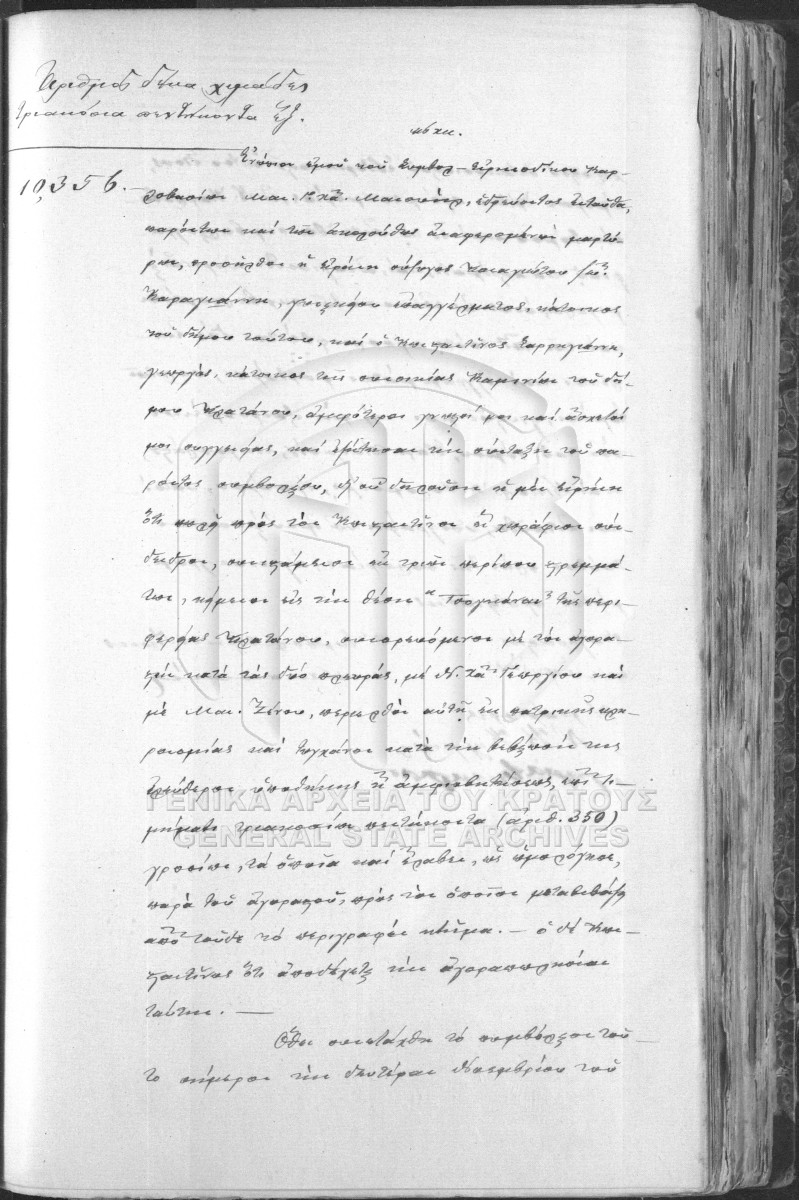 Ἀριθμὸς δέκα χιλιάδες
τριακόσια πεντήκοντα ἕξ.
10,356.—
Ἐνώπιον ἐμοῦ τοῦ Συμβολ–Εἰρηνοδίκου Καρ-
λοβασίων Μαν. Χα. ἑδρεύοντος ἐνταῦθα,
παρόντων καὶ τῶν ἀκολούθως ἀναφερομένων μαρτύ-
ρων, προσῆλθον ἡ Εἰρήνη σύζυγος Παναγιώτου
Καραγιάννη, γεωργικοῦ ἐπαγγέλματος, κάτοικος
τοῦ δήμου τούτου, καὶ ὁ Κωνσταντῖνος Σαρρηγιάννη,
γεωργὸς, κάτοικος τῆς συνοικίας Καμινίων τοῦ δή-
μου Πλατάνου, ἀμφότεροι γνωστοί μοι καὶ ἄσχετοί
μοι συγγενείας, καὶ ἐζήτησαν τὴν σύνταξιν τοῦ πα-
ρόντος συμβολαίου, δι' οὗ δηλοῦσιν ἡ μὲν Εἰρήνη
ὅτι πωλεῖ πρὸς τὸν Κωνσταντῖνον ἓν χωράφιον σύν-
δενδρον, συνιστάμενον ἐκ τριῶν περίπου στρεμμά-
των, κείμενον εἰς τὴν θέσιν τῆς περι-
φερείας Πλατάνου, συνορευόμενον μὲ τὸν ἀγορα-
στὴν κατὰ τὰς δύο πλευράς, μὲ Ν. Χα Γεωργίου καὶ
μὲ Μαν. Ξένου, περιελθὸν αὐτῇ ἐκ πατρικῆς κλη-
ρονομίας καὶ τυγχάνον κατὰ τὴν βεβαίωσίν της
ἐλεύθερον ὑποθήκης ἢ ἀμφισβητήσεως, ἐπὶ τι-
μήματι τριακοσίων πεντήκοντα (ἀριθ. 350)
γροσίων, τὰ ὁποῖα καὶ ἔλαβεν, ὡς ὡμολόγησε,
παρὰ τοῦ ἀγοραστοῦ, πρὸς τὸν ὁποῖον μεταβιβάζει
ἀπὸ τοῦδε τὸ περιγραφὲν κτῆμα.— ὁ δὲ Κων-
σταντῖνος ὅτι ἀποδέχεται τὴν ἀγοραπωλησίαν
ταύτην.—
Ὅθεν συνετάχθη τὸ συμβόλαιον τοῦ-
το σήμερον τὴν δευτέραν Νοεμβρίου τοῦ
ΓΕΝΙΚΑ ΑΡΧΕΙΑ ΤΟΥ ΚΡΑΤΟΥΣ
GENERAL STATE ARCHIVES